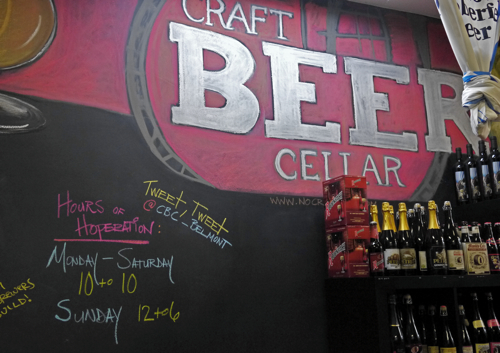 CRAFT
BEER
CELLAR
WWW.NOCRA
TWEET, TWEET
@CBC_BELMONT
HOURS OF
HOPERATION:
MONDAY - SATURDAY
10 to 10
SUNDAY 12 to 6
Beer